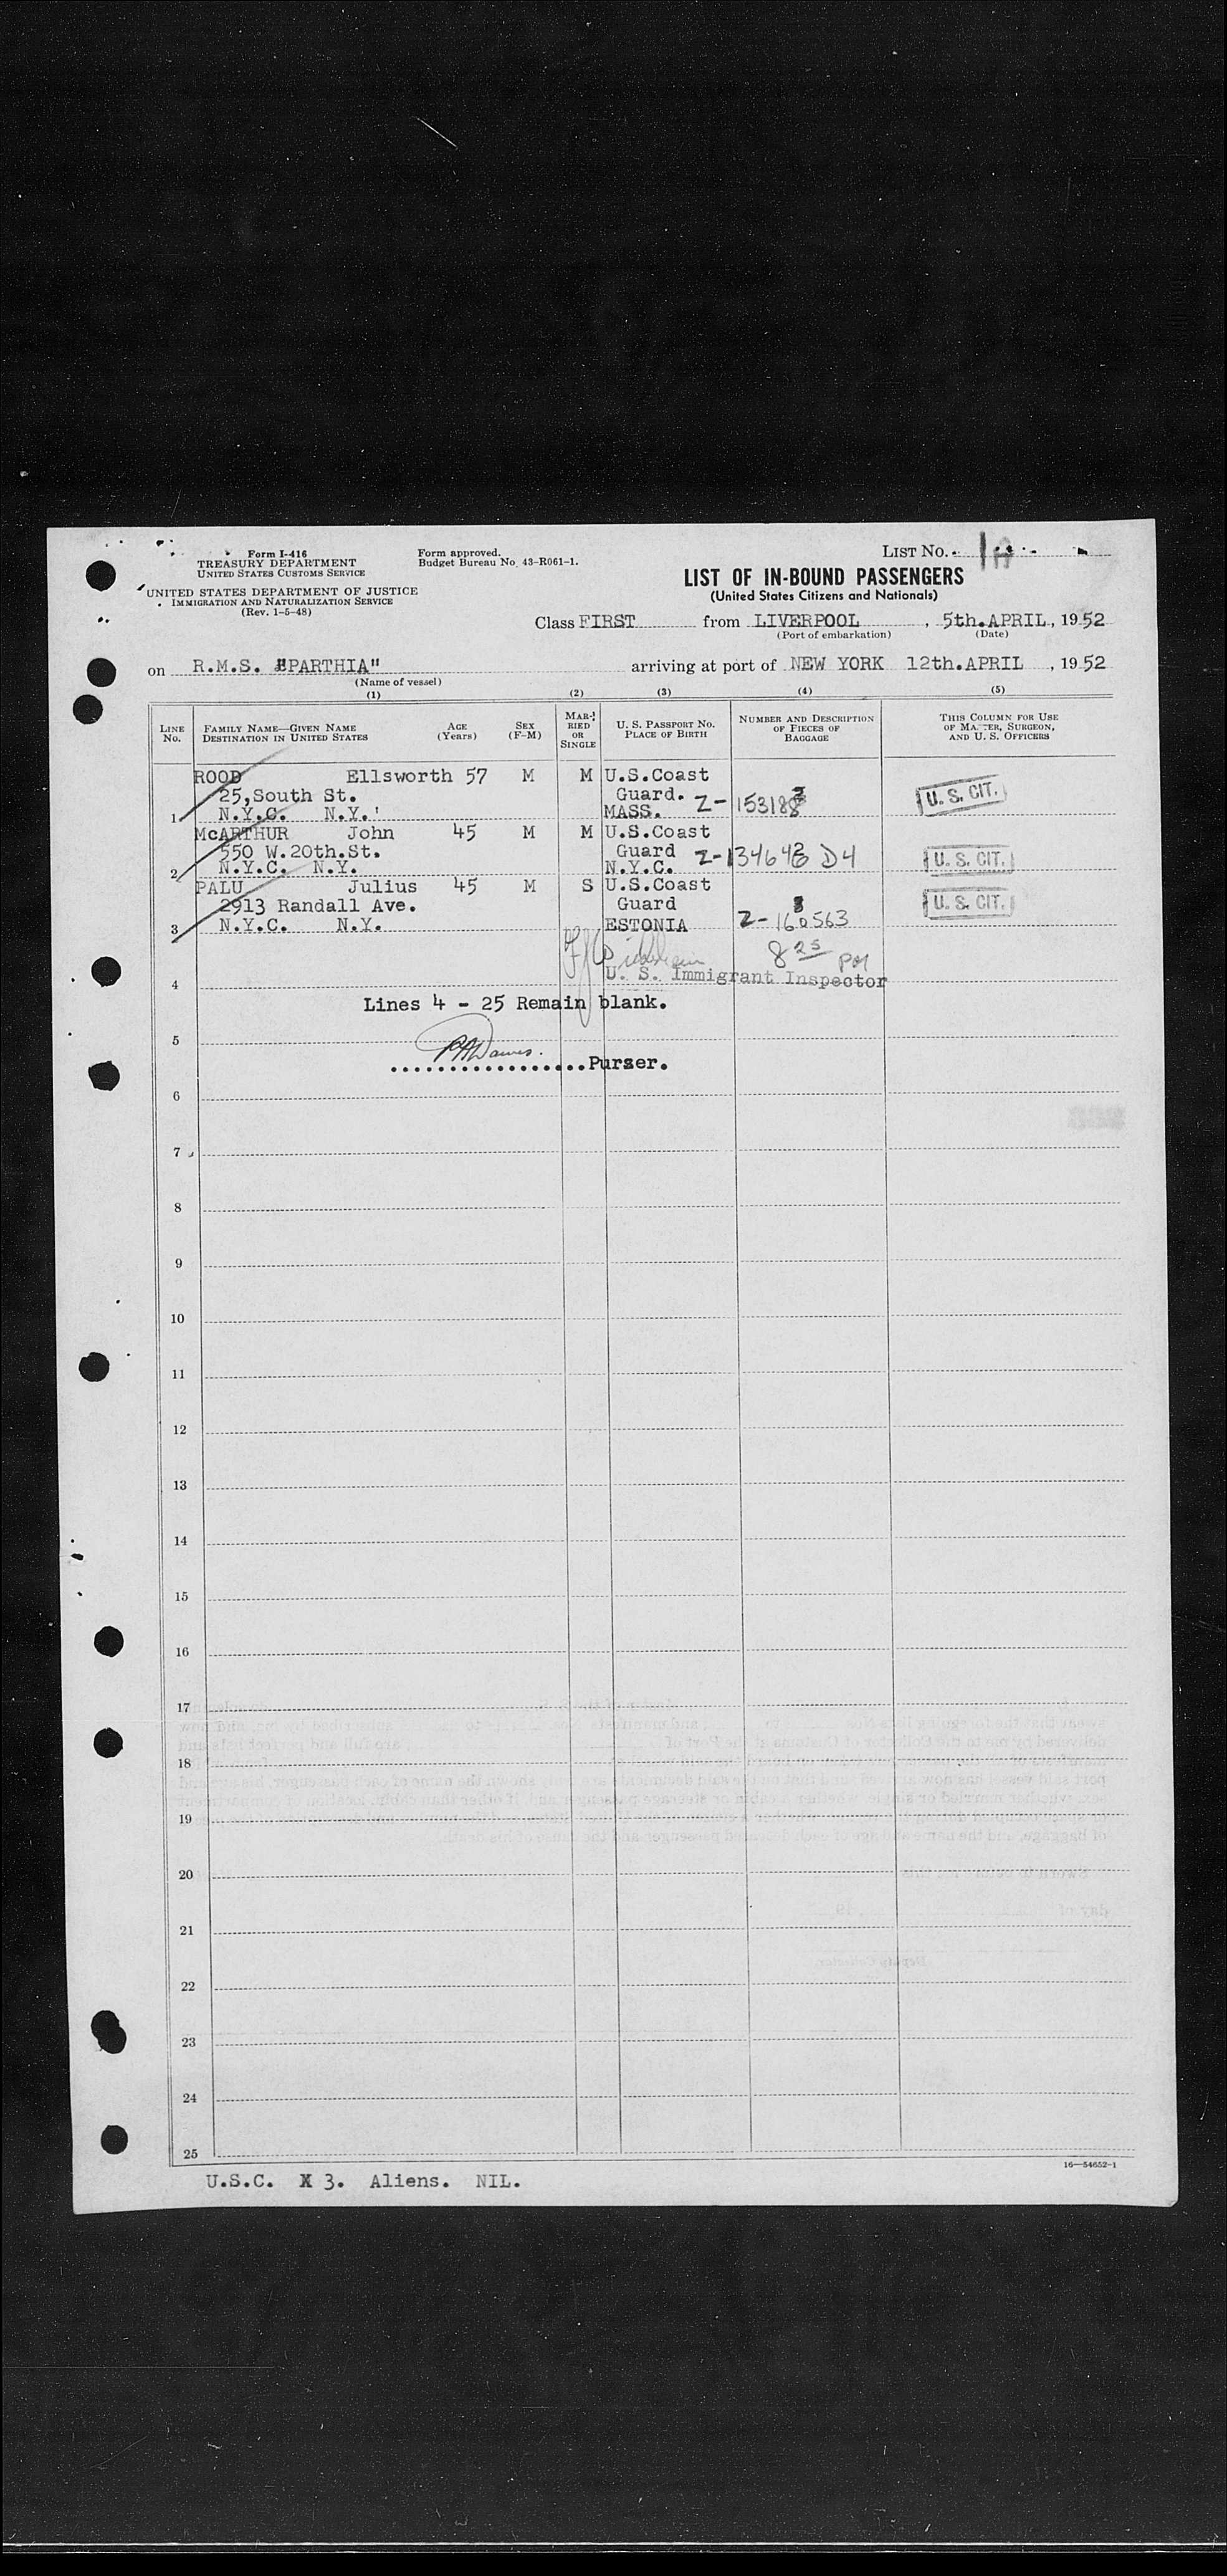 Form I-416
TREASURY DEPARTMENT
UNITED STATES CUSTOMS SERVICE
UNITED STATES DEPARTMENT OF JUSTICE
IMMIGRATION AND NATURALIZATION SERVICE
(Rev. 1-5-48)
Form approved.
Budget Bureau No. 43-R061-1.
LIST NO.
LIST OF IN-BOUND PASSENGERS
(United States Citizens and Nationals)
Class FIRST from LIVERPOOL, 5th.APRIL, 1952
(Port of embarkation) (Date)
on R.M.S. "PARTHIA" arriving at port of NEW YORK 12th.APRIL, 1952
(Name of vessel)
(1) (2) (3) (4) (5)
LINE No. FAMILY NAME—GIVEN NAME DESTINATION IN UNITED STATES AGE (Years) SEX (F-M) MARRIED OR SINGLE U. S. PASSPORT NO. PLACE OF BIRTH NUMBER AND DESCRIPTION OF PIECES OF BAGGAGE THIS COLUMN FOR USE OF MASTER, SURGEON, AND U. S. OFFICERS
ROOD Ellsworth 57 M M U.S.Coast
25,South St. Guard. U. S. CIT.
1 N.Y.C. N.Y. MASS. Z-
McARTHUR John 45 M M U.S.Coast
550 W.20th.St. Guard D4 U. S. CIT.
2 N.Y.C. N.Y. N.Y.C.
PALU Julius 45 M S U.S.Coast
2913 Randall Ave. Guard U. S. CIT.
3 N.Y.C. N.Y. ESTONIA Z-160563
8 25
4 U. S. Immigrant Inspector
Lines 4 - 25 Remain blank.
5
..................Purser.
6
7
8
9
10
11
12
13
14
15
16
17
18
19
20
21
22
23
24
25
16—54652-1
U.S.C. X 3. Aliens. NIL.